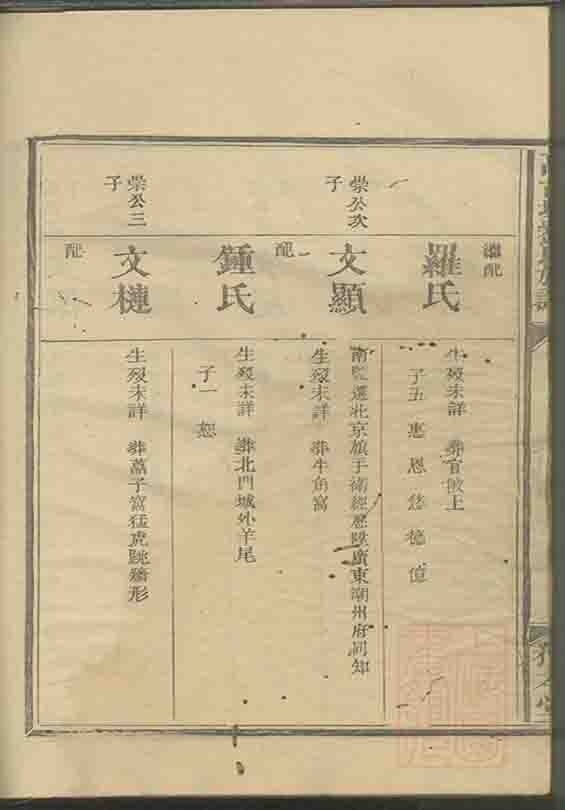 繼配
羅氏
生歿未詳 葬官陂上
子五 惠 恩 慈 德 億
榮公次子
文顯
南監選北京旗手衛經歷陞廣東潮州府同知
生歿未詳 葬牛角窩
配
鍾氏
生歿未詳 葬北門城外羊尾
子一 恕
榮公三子
文槤
生歿未詳 葬藁子窩猛虎跳牆形
配